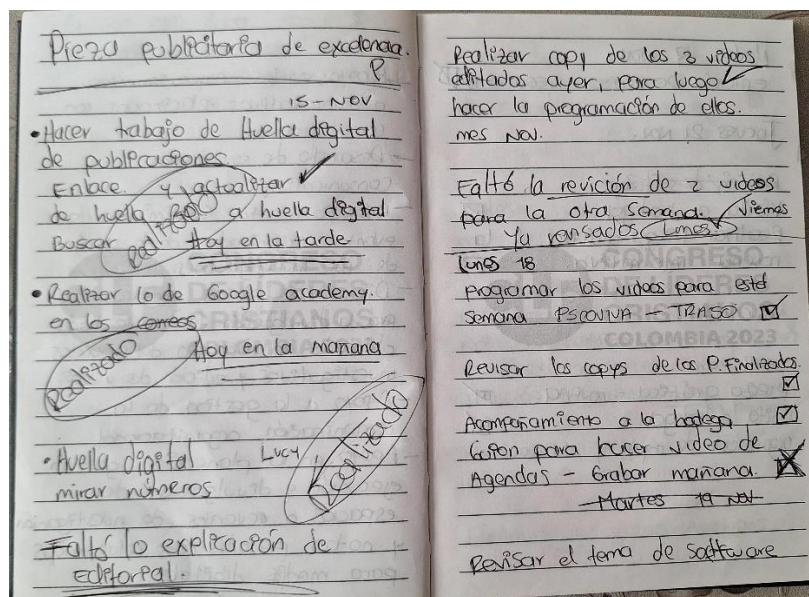 Pieza publicitaria de excelencia.
P
15-NOV
• Hacer trabajo de Huella digital
de publicaciones
Enlace y actualizar ✓
de huella a huella digital
Buscar Hoy en la tarde
Realizado
• Realizar lo de Google academy.
en los correos
Hoy en la mañana
Realizado
• Huella digital Lucy
mirar números
Realizado
Faltó lo explicación de
Editorial.
Realizar copy de los 3 videos
editados ayer, para luego ✓
hacer la programación de ellos.
mes Nov.
Faltó la revición de 2 videos
para la otra semana. Viernes
Ya revisados Lunes
lunes 18
Programar los videos para esta
semana PSCOVIVA - TRASO ☑
Revisar los copys de los P. Finalizados.
☑
Acompañamiento a la bodega ☑
Guion para hacer video de
Agendas - Grabar mañana.
Martes 19 Nov
Revisar el tema de software
CONGRESO
DE LÍDERES
CRISTIANOS
COLOMBIA 2023